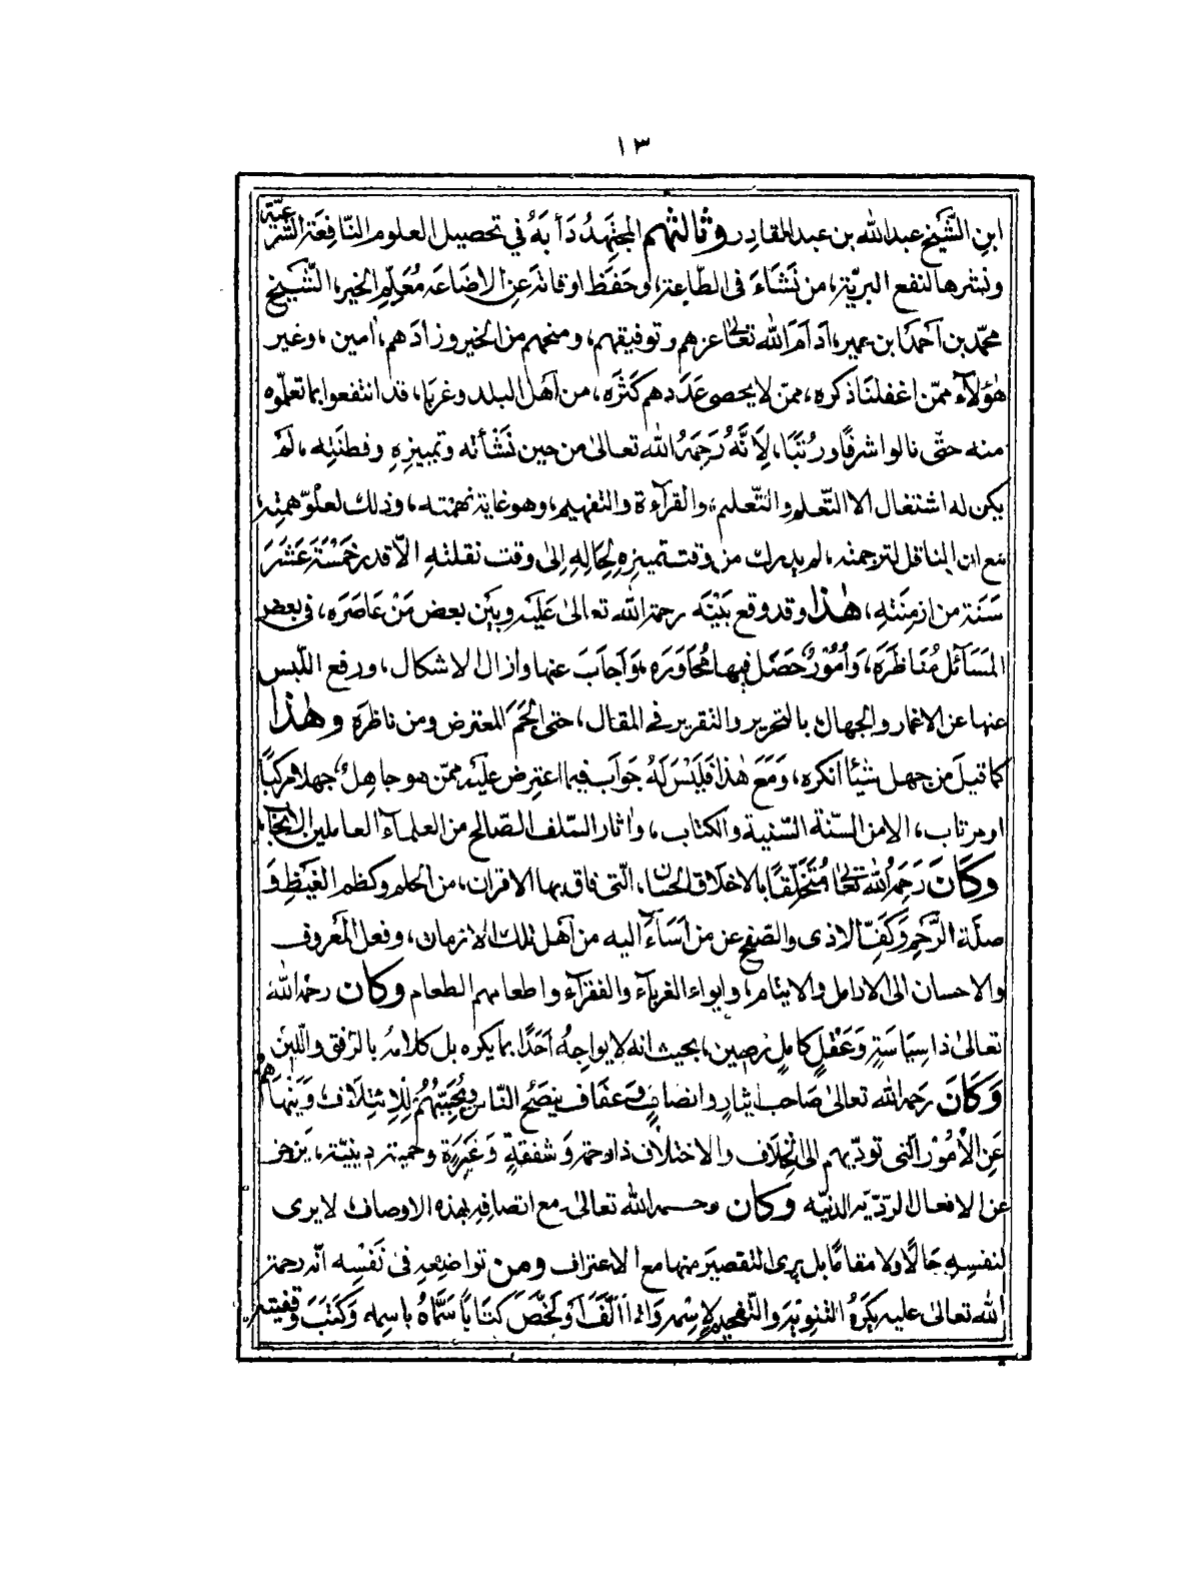 ١٣
ابنِ الشَّيخ عبد الله بن عبد القادِر وثالثهم المجتَهِدُ دَأبَهُ في تحصيل العلوم النّافِعَة الشّرعيّة
ونشرها لنفع البريّة، من نَشَاءَ فى الطّاعة، وحَفَظَ اوقاته عن الاضَاعَه مُعَلِّمِ الخير، الشّيخ
محمّد بن اَحمَدَ ابن عمير، اَدَامَ الله تعالىٰ عزهم وتوفيقهم، ومنحهم من الخير وزادَهم، اٰمين، وغير
هٰؤلآء ممّن اغفلنَا ذكره، ممّن لا يحصى عَدَدهم كثرَه، من اَهل البلد وغربا، قد انتفعوا بما تعلّموه
منه حتّى نالوا شرفًا ورُتَبًا، لِاَنَّهُ رَحِمَهُ الله تعالىٰ من حين نَشْأته وتمييزِهِ وفطنَتِه، لَم
يكن له اشتغال الا التّعلم والتّعليم، والقرآءة والتفهيم، وهو غاية نهمته، وذلك لعلوّ همتِه،
مع ان الناقل لترجمته، لم يدرك من وقت تمييزِهِ لِحَالِهِ اِلىٰ وقت نقلتهِ الّا قدر خَمْسَةَ عَشَرَ
سَنَة من ازمِنَتِهِ، هٰذا وقد وقع بَيْنَه رحمة الله تعالىٰ عَلَيْه وبَيْن بعض مَنْ عَاصَرَه، فى بعض
المَسَآئل مُنَاظَرَه، وَاُمُوْرٌ حَصَل فيها مُحَاوَرَه، وَاَجَابَ عنها وازال الاشكال، ورفع اللّبس
عنها عن الاغمار والجهال، بالتحرير والتقرير فى المقال، حتى الجَمَ للمعترض ومن ناظره وهٰذا
كما قيلَ من جهل شيئًا انكره، وَمَعَ هٰذا فليْسَ لَهُ جَوَاب فيما اعترِض عَلَيْه ممّن هو جاهِلٌ جهلا مركّبًا
او مرتاب، الا من السّنّة السّنية والكتاب، واٰثار السّلف الصّالح من العلمآء العاملين الانجاب
وكَانَ رَحِمَهُ الله تعالىٰ مُتَخَلِّقًا بالاخلاق الحسان، الّتى فاق بها الاقران، من الحلم وكظم الغَيْظِ وَ
صلَة الرَّحِمِ وَكَفّ الاذى والصّفح عن من اَسَآءَ اليه من اَهل تلك الازمان، وفعل المَعروف
والاحسان الى الارامل والايتام، وايواء الغربآء والفقرآء واطعامهم الطعام وكان رحمه الله
تعالىٰ ذا سِيَاسَةٍ وَعَقْلٍ كامِلٍ رَصِين، بحيث انه لا يواجِهُ اَحَدًا بما يكره بل كلامهُ بالرّفق واللّين
وَكَانَ رَحمه الله تعالىٰ صَاحب ايثار وانصافٍ وَعفَاف ينصَحُ النّاس وَيُحِبُّهُمْ لِلاِئتِلَاف، وَيَنْهَاهم
عَنِ الاُمُوْر الّتى تودّيهم الى الخِلَاف والاختلاف ذا رحمة وَشفقةٍ وَغَيرَةٍ وحمية دينيّة، يزجر
عن الافعال الرّديّه الدنيّه وكان رحمه الله تعالىٰ مع اتصافِهِ بهذه الاوصاف لا يرى
لنفسِهِ حَالًا ولا مقامًا بل يرى التقصيَر منها مع الاعتراف ومن تواضِعِهِ فى نَفْسِه انّه رحمة
الله تعالىٰ عليه يَكرَهُ التنوِيْهَ والتّفخيم لِاِسْمِهِ وَاذا اَلّفَ اَو لَخَّصَ كتَابًا سَمَّاهُ باسِمه وَكَتَبَ وقفيته